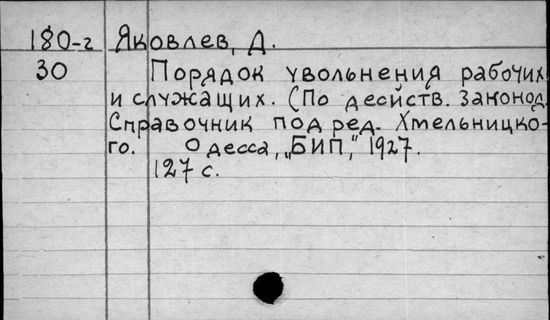 180-г Яковлев, Д.
30 Порядок увольнения рабочих
и служащих. (По десйств. законод.
Справочник под ред. Хмельницко-
го. Одесса, "БИП," 1927.
127 с.